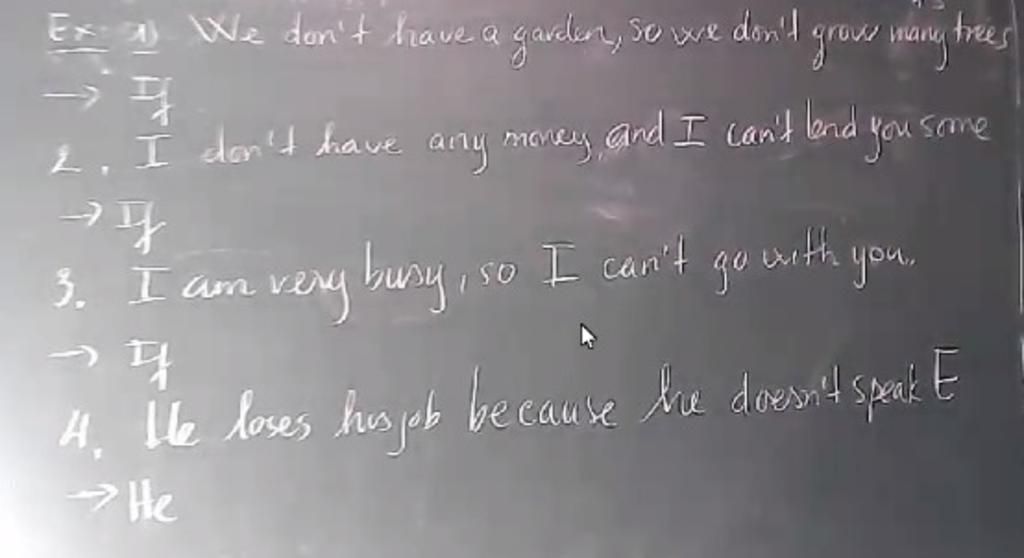 Ex: 1) We don't have a garden, so we don't grow many trees
→ If
2. I don't have any money, and I can't lend you some
→ If
3. I am very busy, so I can't go with you.
→ If
4. He loses his job because he doesn't speak E
→ He